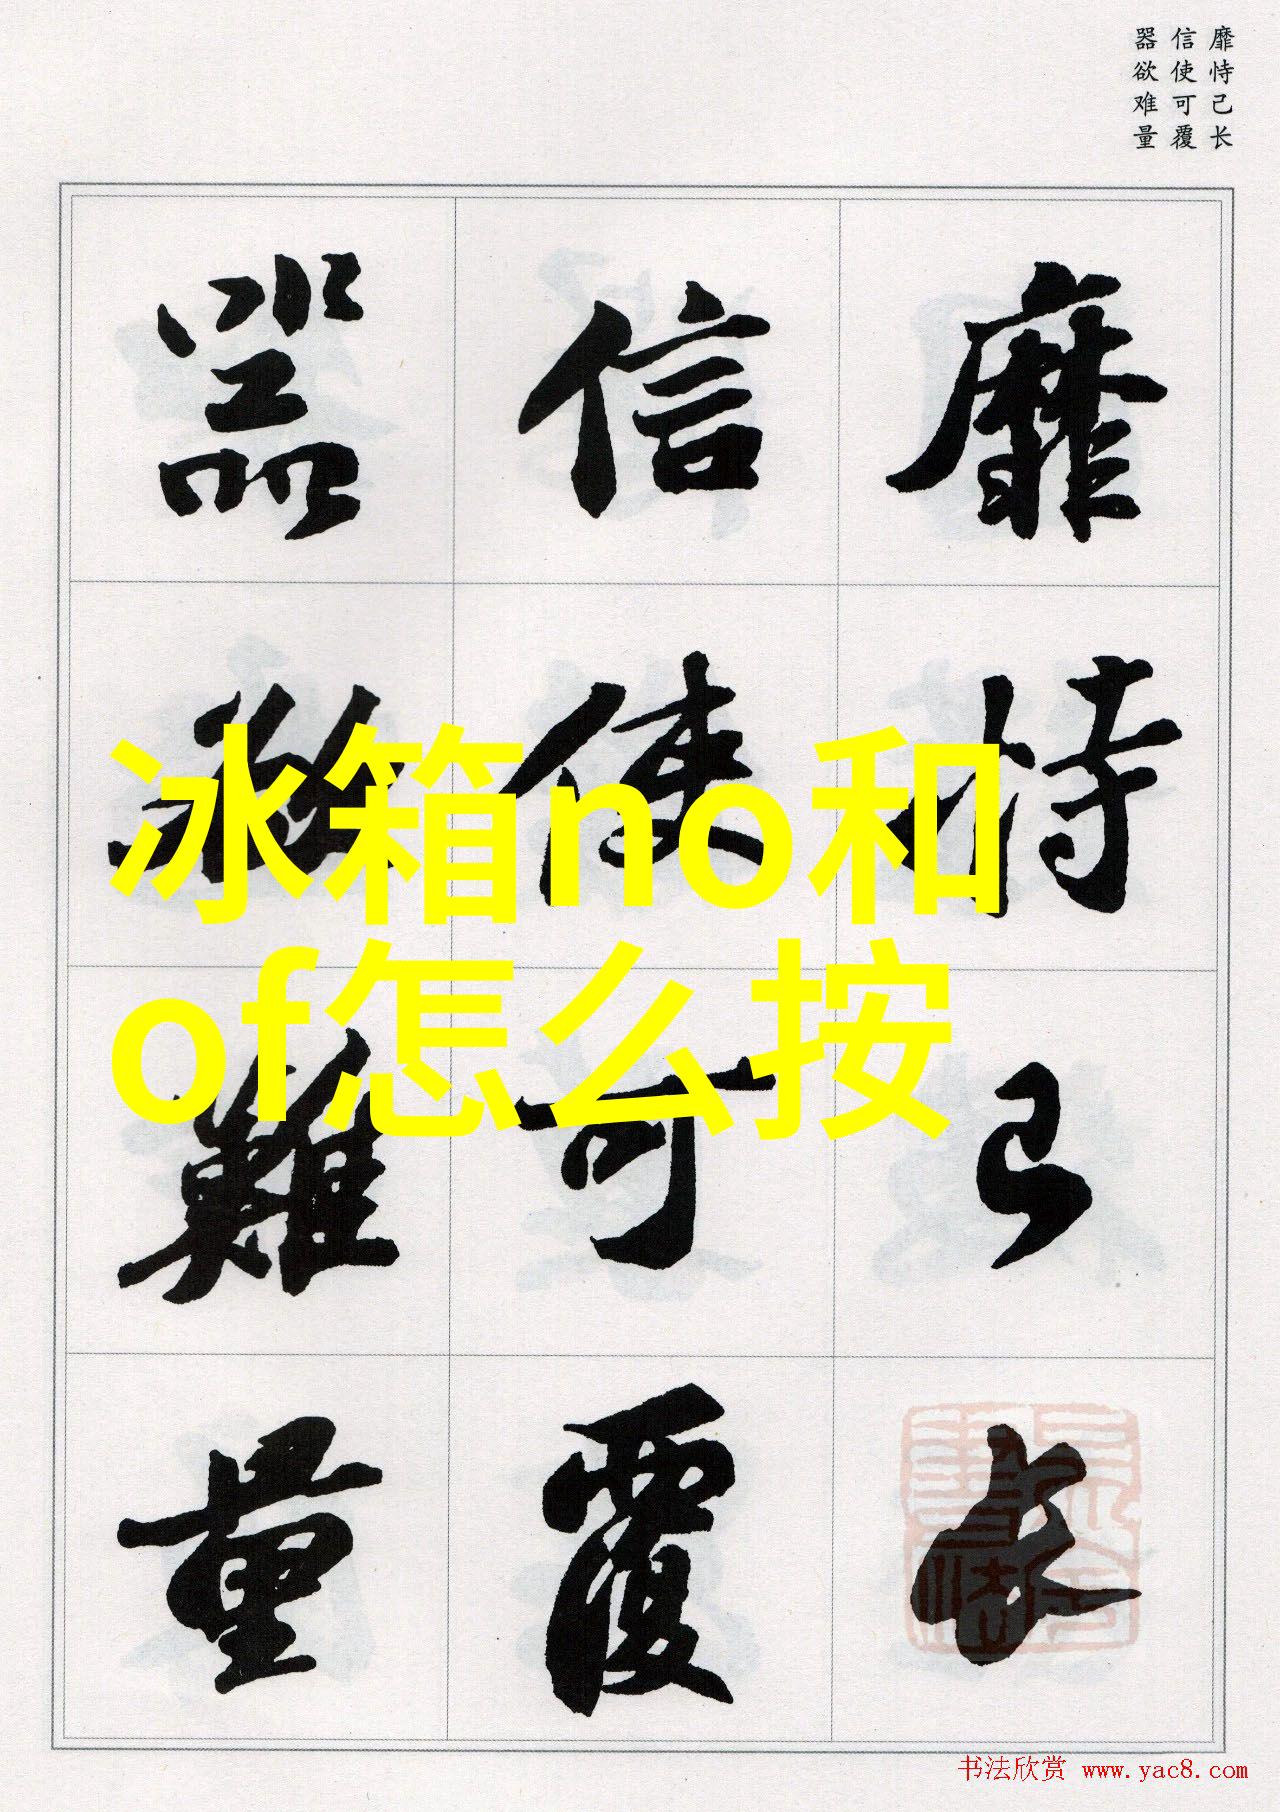 靡恃己长
信使可覆
器欲难量
靡恃己長
信使可覆
器欲難量
冰箱no和
of怎么按
书法欣赏 www.yac8.com